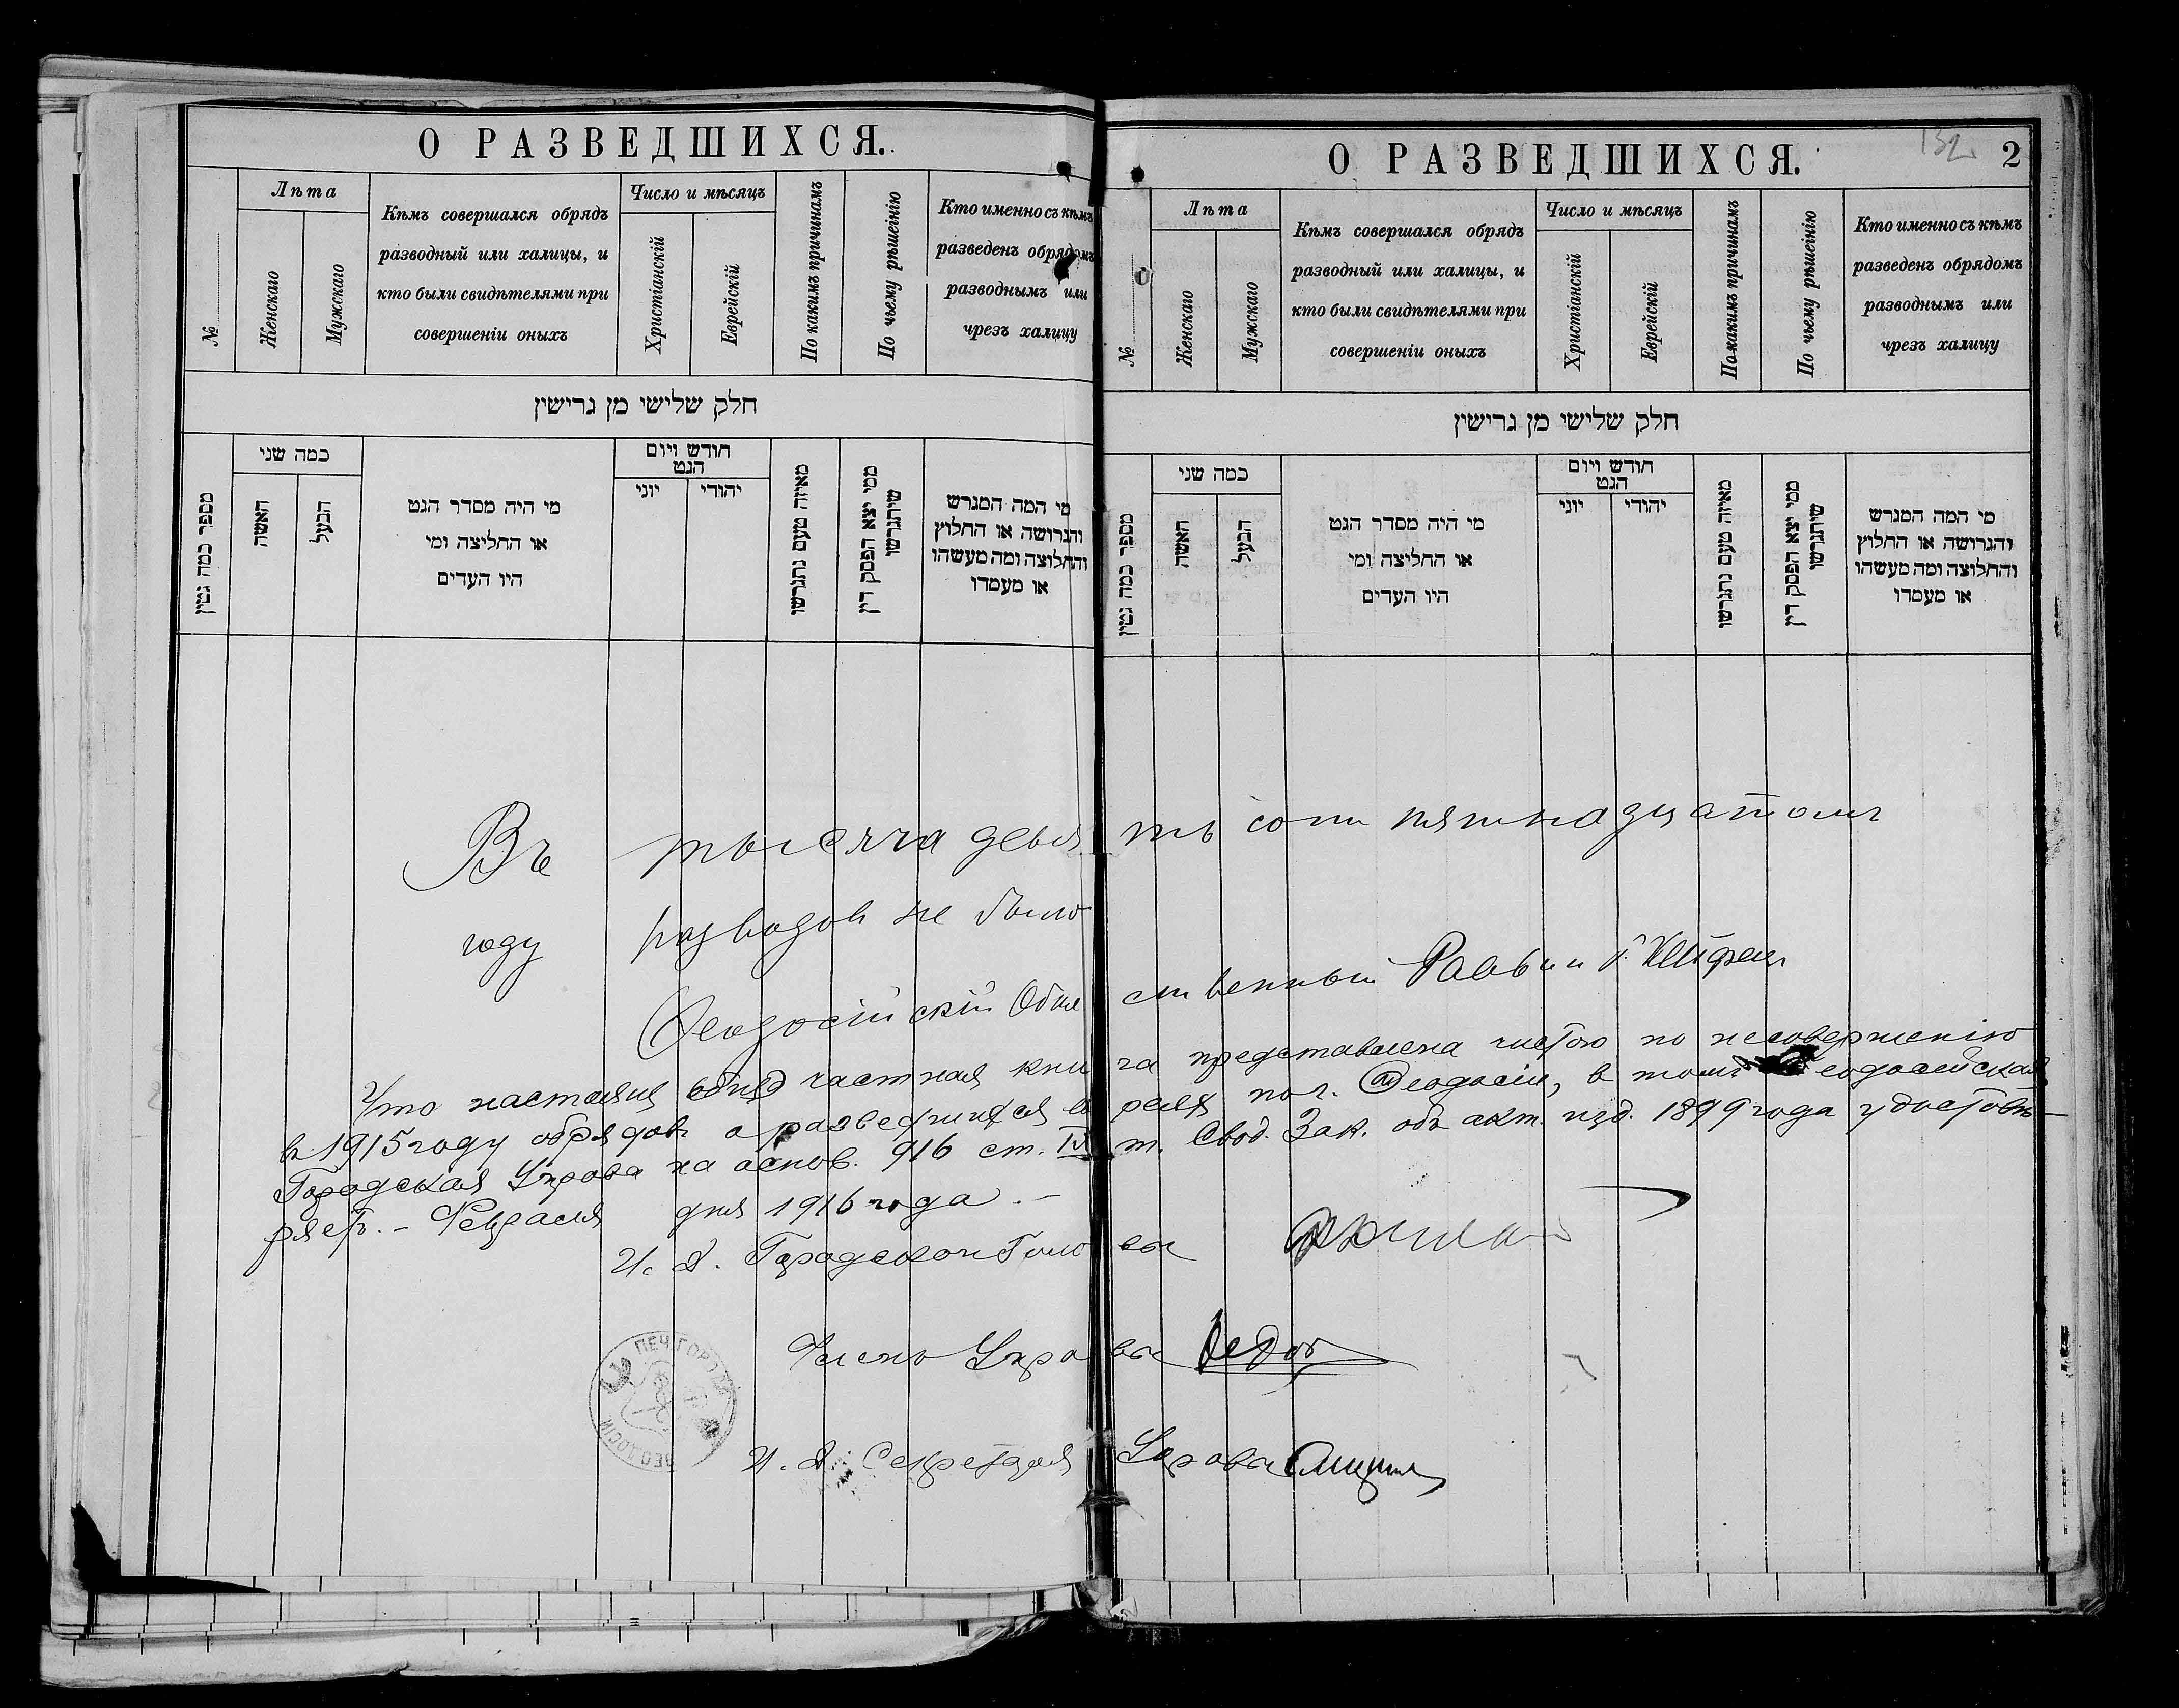 О РАЗВЕДШИХСЯ.
№
Лѣта
Женскаго
Мужскаго
Кѣмъ совершался обрядъ
разводный или халицы, и
кто были свидѣтелями при
совершеніи оныхъ
Число и мѣсяцъ
Христіанскій
Еврейскій
По какимъ причинамъ
По чьему рѣшеінію
Кто именно съ кѣмъ
разведенъ обрядомъ
разводнымъ или
чрезъ халицу
חלק שלישי מן גרישין
מספר כמה גטין
כמה שני
האשה
הבעל
מי היה מסדר הגט
או החליצה ומי
היו העדים
חודש ויום
הגט
יוני
יהודי
מאיזה טעם נתגרשו
ממי יצא הפסק דין
שיתגרשו
מי המה המגרש
והגרושה או החלוץ
והחלוצה ומה מעשהו
או מעמדו
О РАЗВЕДШИХСЯ.
132
2
№
Лѣта
Женскаго
Мужскаго
Кѣмъ совершался обрядъ
разводный или халицы, и
кто были свидѣтелями при
совершеніи оныхъ
Число и мѣсяцъ
Христіанскій
Еврейскій
По какимъ причинамъ
По чьему рѣшеінію
Кто именно съ кѣмъ
разведенъ обрядомъ
разводнымъ или
чрезъ халицу
חלק שלישי מן גרישין
מספר כמה גטין
כמה שני
האשה
הבעל
מי היה מסדר הגט
או החליצה ומי
היו העדים
חודש ויום
הגט
יוני
יהודי
מאיזה טעם נתגרשו
ממי יצא הפסק דין
שיתגרשו
מי המה המגרש
והגרושה או החלוץ
והחלוצה ומה מעשהו
או מעמדו
Въ тысяча девять сотъ пятнадцатомъ
году разводов не было
Ѳеодосійскій Общественный Раввин
Что настоящая частная книга представлена чистою по несовершенію
в 1915 году обрядов о разведшихся евреях по г. Ѳеодосіи, в томъ Ѳеодосійская
Городская Управа на основ. 916 ст. IX т. Свод. Зак. объ акт. изд. 1899 года удостовѣ-
ряетъ. - Февраля дня 1916 года. -
И. д. Городского Головы
Членъ Управы
И. д. Секретаря Управы
ПЕЧ. ГОР.
ѲЕОДОСІИ